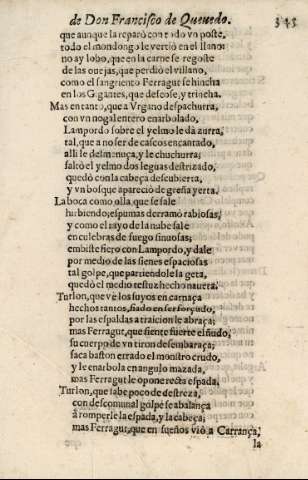 de Don Francisco de Queuedo. 345
que aunque la reparò con todo vn poste,
todo el mondongo le vertiò en el llano:
no ay lobo, que en la carne se regoste
de las ouejas, que perdiò el villano,
como el sangriento Ferragut se hincha
en los Gigantes, que descose, y trincha.
Mas en tanto, que a Vrgano despachurra,
con vn nogal entero enarbolado,
Lampordo sobre el yelmo le dà zurra,
tal, que a no ser de cascos encantado,
alli le desmenuça, y le chuchurra;
saltò el yelmo dos leguas destrizado,
quedò con la cabeça descubierta,
y vn bosque apareciò de greña yerta.
La boca como olla, que se sale
hirbiendo; espumas derramò rabiosas,
y como el rayo de la nube sale
en culebras de fuego sinuosas;
embiste fiero con Lampordo, y dale
por medio de las sienes espaciosas
tal golpe, que partiendole la geta,
quedò el medio testuz hecho
Turlon, que vè los suyos en carnaça
hechos tantos, fiado en ser forçudo,
por las espaldas a traicion le abraça;
mas Ferragut, que siente fuerte el ñudo,
su cuerpo de vn tiron desembaraça;
saca baston errado el monstro crudo,
y le enarbola en angulo mazada,
mas Ferragut le opone recta espada,
Turlon, que sabe poco de destreza,
con descomunal golpe se abalança
à romperse la espada, y la cabeça;
mas Ferragut, que en sueños viò a Carrança,
la